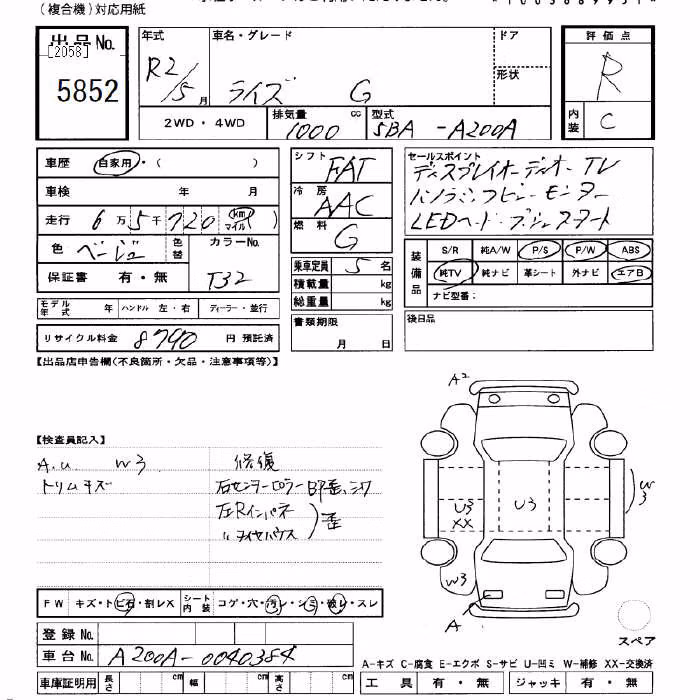 (複合機)対応用紙
出品No.
[2058]
5852
年式 R2/5月
車名・グレード ライズ G
ドア
形状
評価点 R
内装 C
2WD・4WD
排気量 1000 cc
型式 5BA-A200A
車歴 自家用・( )
車検 年 月
走行 6万5千720 km マイル( )
色 ベージュ 色替
カラーNo. T32
保証書 有・無
モデル年式 年 ハンドル 左・右 ディーラー・並行
リサイクル料金 8790 円 預託済
シフト FAT
冷房 AAC
燃料 G
乗車定員 5 名
積載量 kg
総重量 kg
書類期限
月 日
セールスポイント
ディスプレイオーディオ TV
パノラミックビューモニター
LEDヘッド プッシュスタート
装備品
S/R 純A/W P/S P/W ABS
純TV 純ナビ 革シート 外ナビ エアB
ナビ型番:
後日品
【出品店申告欄(不良箇所・欠品・注意事項等)】
【検査員記入】
A.U W3
トリムキズ
修復
右センターピラー 歪、シワ
左Rインパネ
〃タイヤハウス
歪
A2
W3
U3
XX
U3
W3
A
スペア
FW キズ・トビ石・割レX シート内装 コゲ・穴・汚レ・シミ・破レ・スレ
登録No.
車台No. A200A-0040384
車庫証明用 長さ cm 幅 cm 高さ cm
A-キズ C-腐食 E-エクボ S-サビ U-凹ミ W-補修 XX-交換済
工具 有・無 ジャッキ 有・無